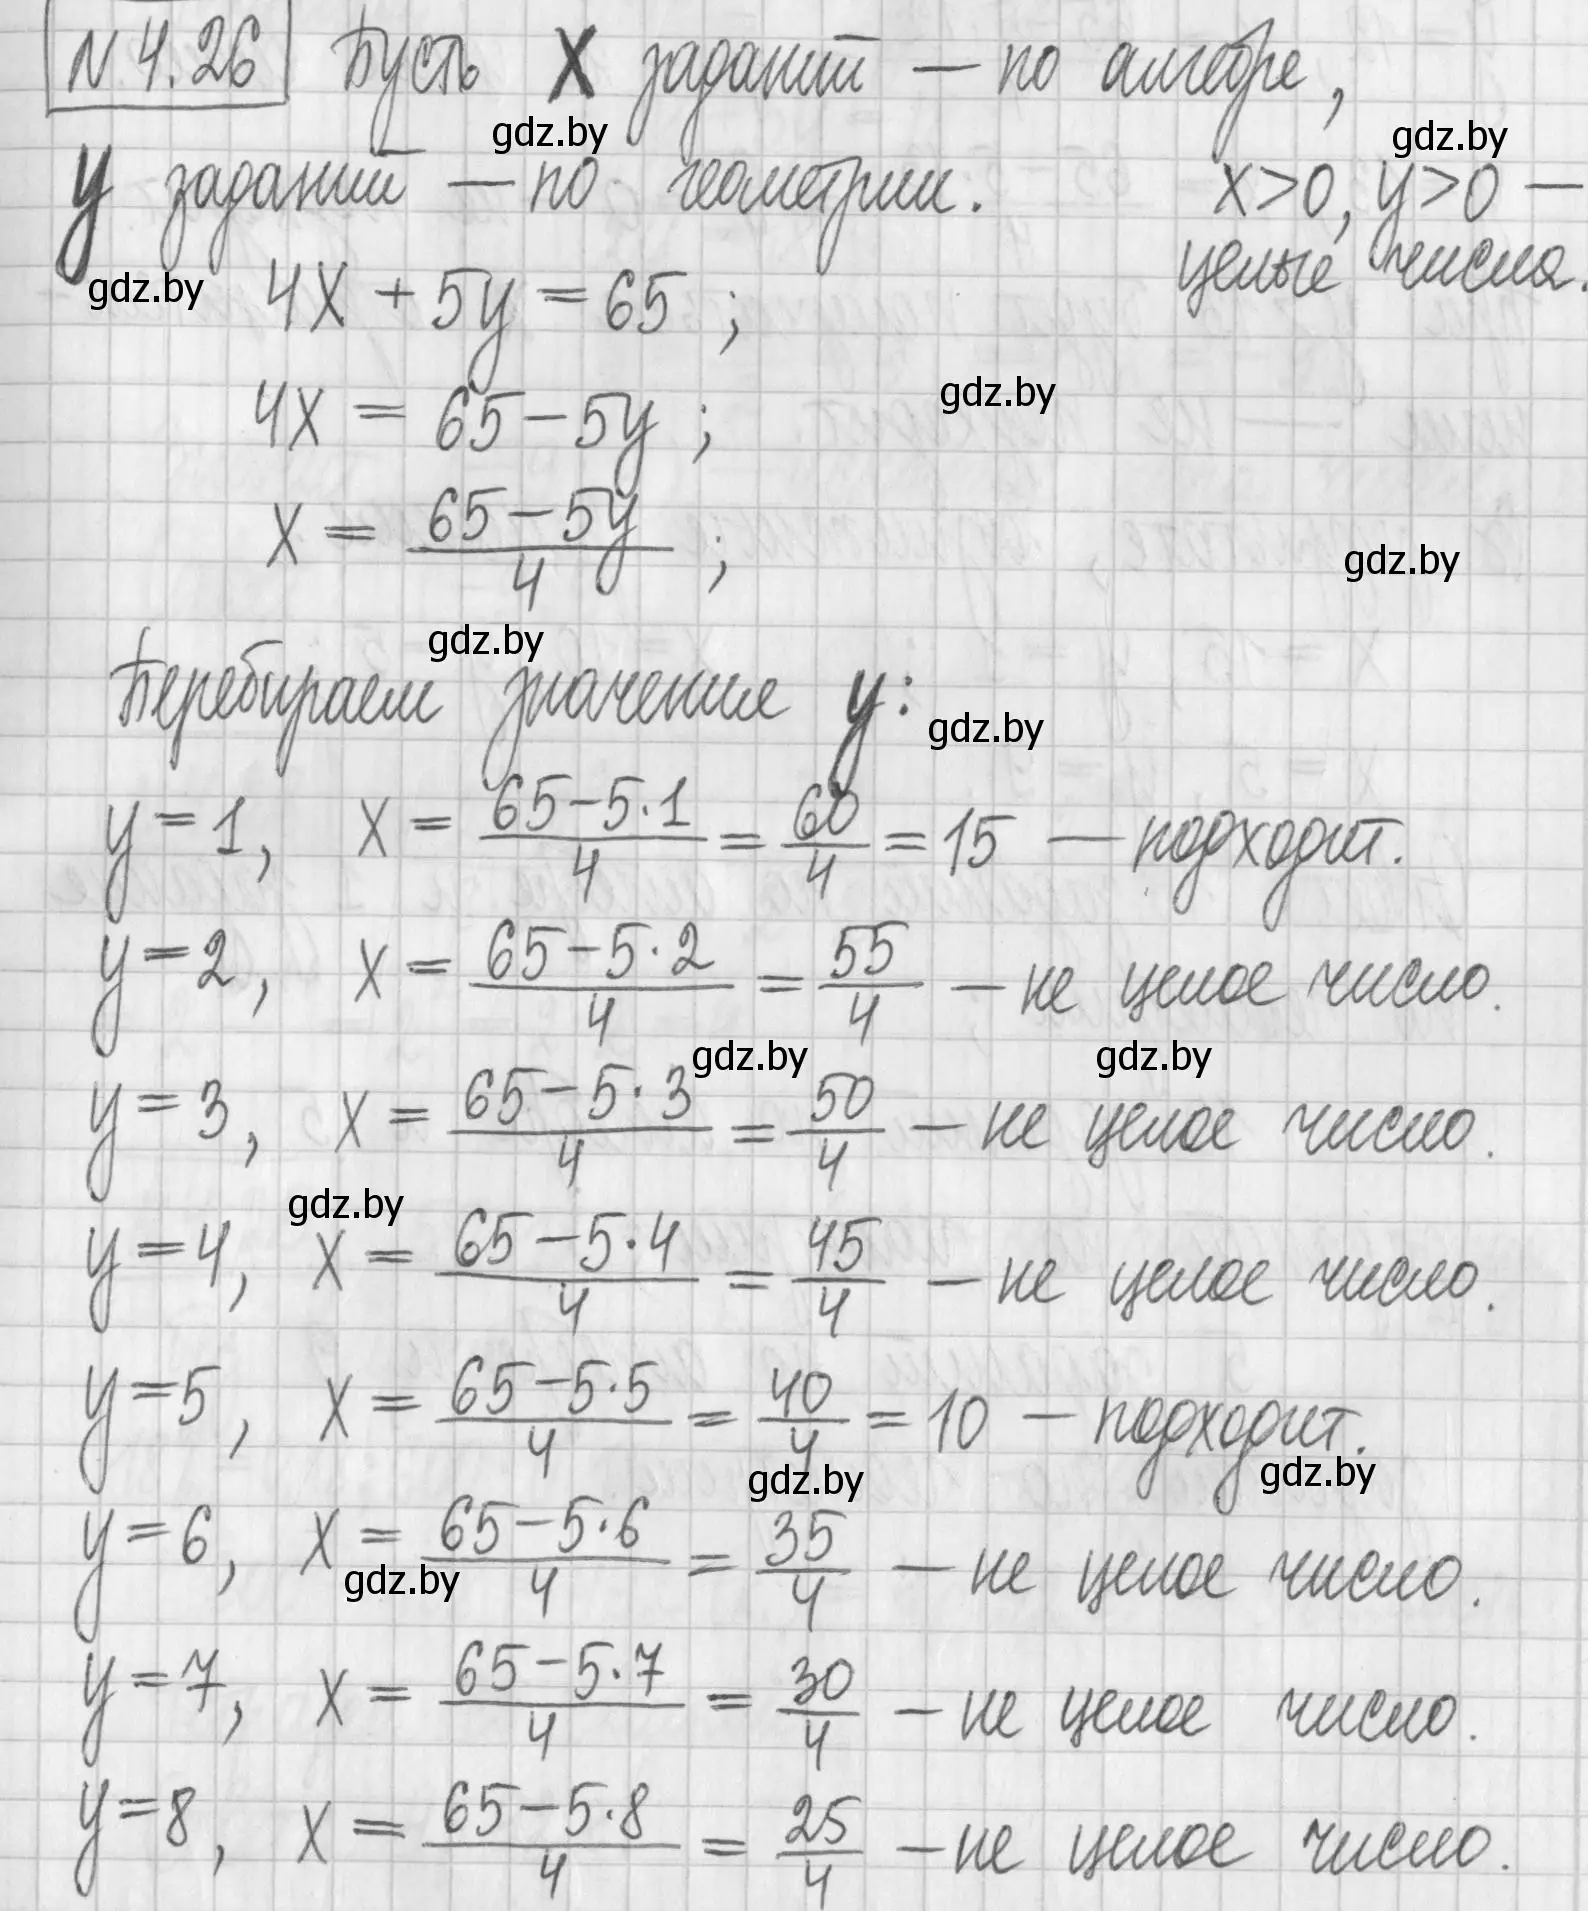 N 4.26 Пусть X заданий — по алгебре,
gdz.by gdz.by
y заданий — по геометрии. x>0, y>0 —
целые числа.
gdz.by
4x + 5y = 65 ;
gdz.by
4x = 65 – 5y ;
x = (65 – 5y)/4 ;
gdz.by
gdz.by
Перебираем значения y:
gdz.by
y = 1, x = (65 – 5·1)/4 = 60/4 = 15 — подходит.
y = 2, x = (65 – 5·2)/4 = 55/4 — не целое число.
gdz.by gdz.by
y = 3, x = (65 – 5·3)/4 = 50/4 — не целое число.
gdz.by
y = 4, x = (65 – 5·4)/4 = 45/4 — не целое число.
y = 5, x = (65 – 5·5)/4 = 40/4 = 10 — подходит.
gdz.by gdz.by
y = 6, x = (65 – 5·6)/4 = 35/4 — не целое число.
gdz.by
y = 7, x = (65 – 5·7)/4 = 30/4 — не целое число.
y = 8, x = (65 – 5·8)/4 = 25/4 — не целое число.